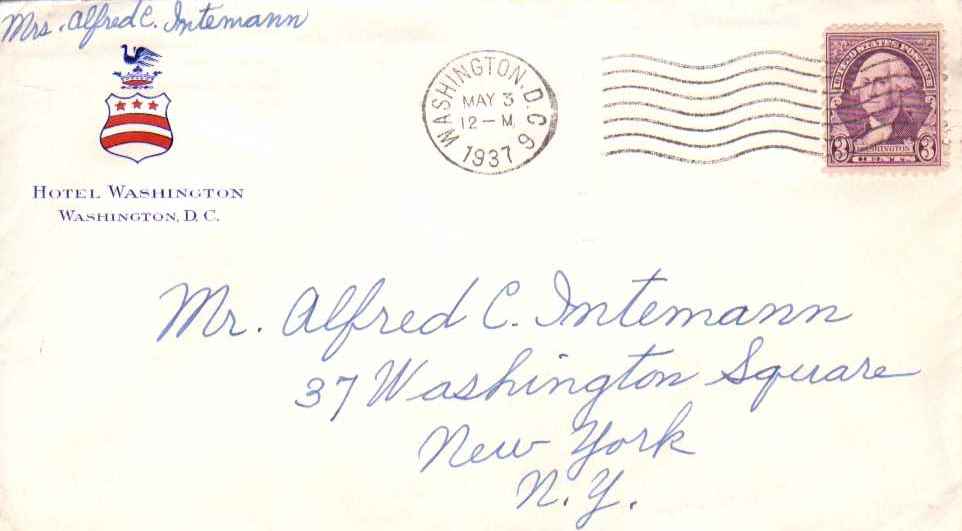 Mrs. Alfred C. Intemann
HOTEL WASHINGTON
WASHINGTON, D. C.
WASHINGTON, D.C. 9
MAY 3
12 - M
1937
UNITED STATES POSTAGE
WASHINGTON
3 CENTS 3
Mr. Alfred C. Intemann
37 Washington Square
New York
N.Y.